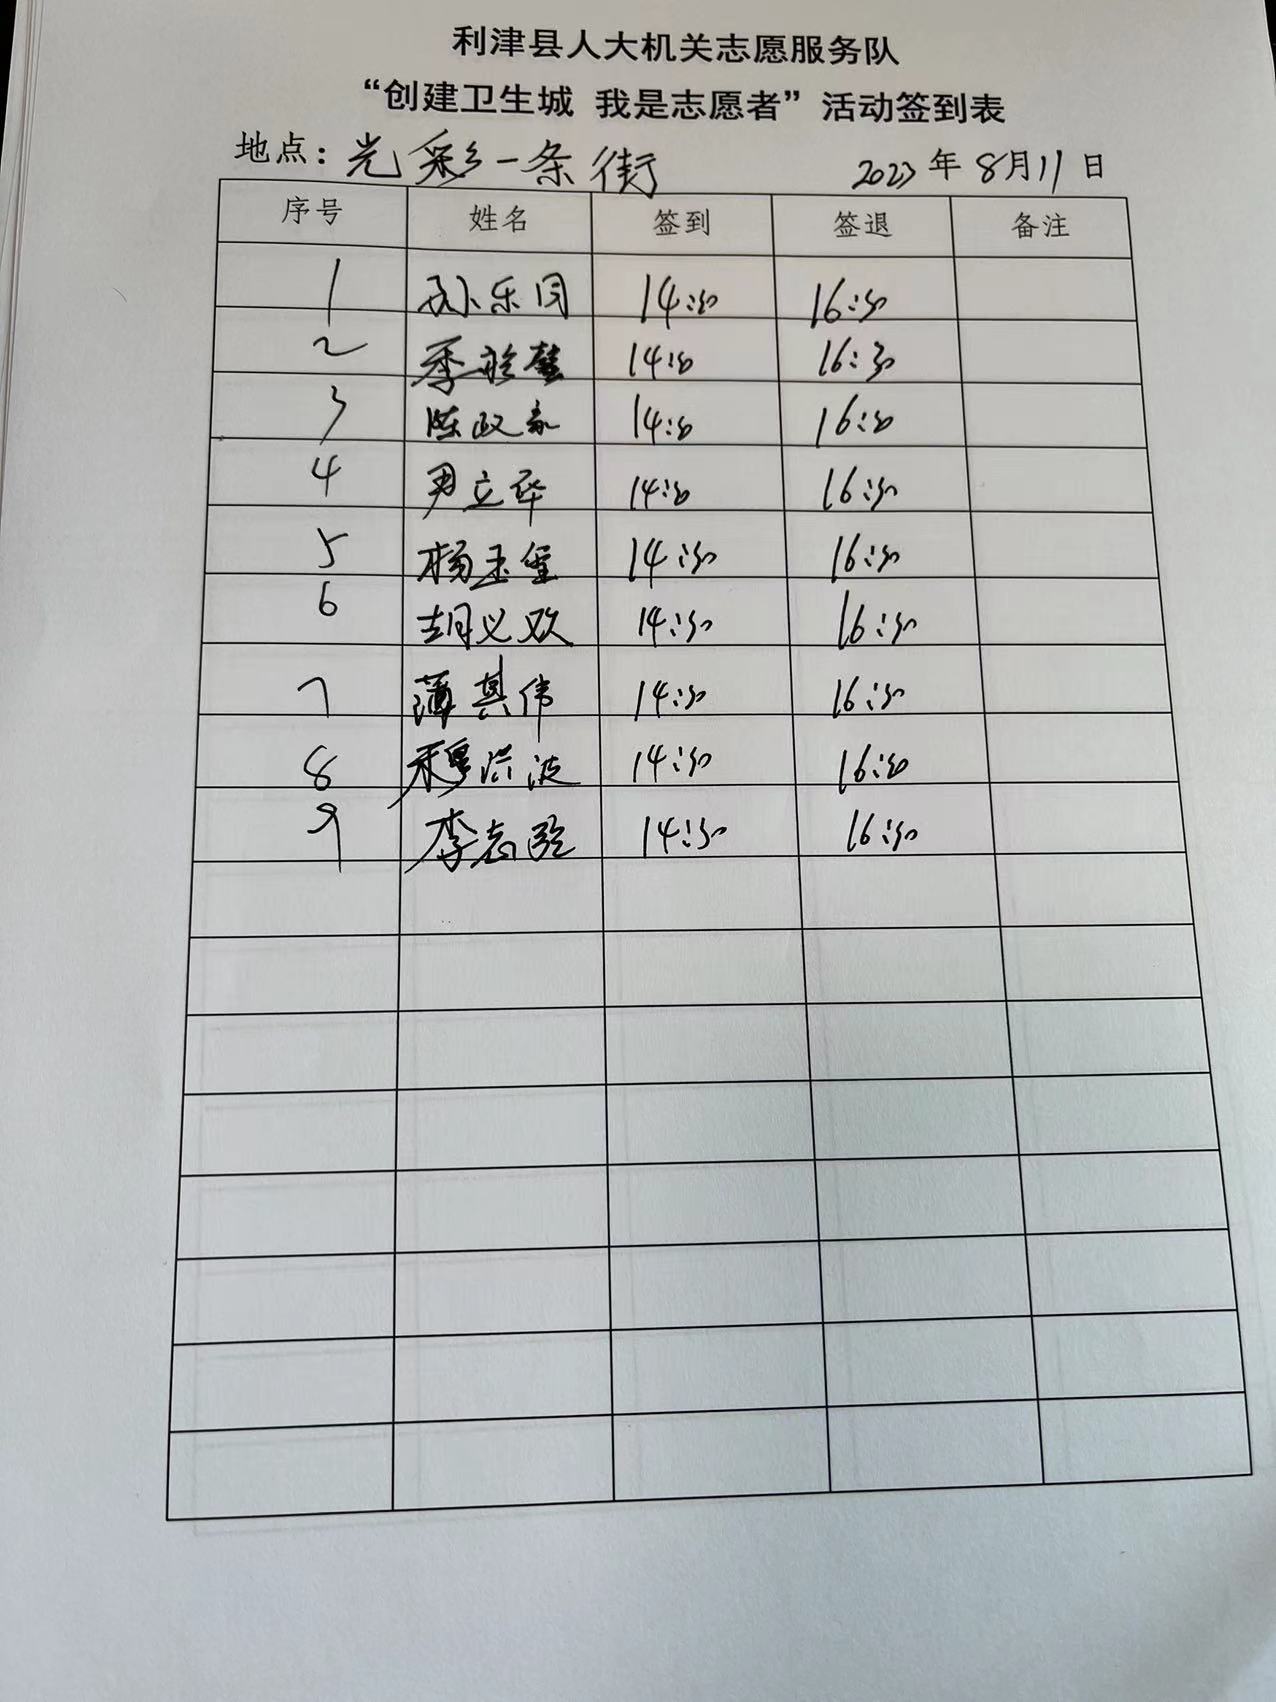 利津县人大机关志愿服务队
“创建卫生城 我是志愿者”活动签到表
地点：光彩一条街 2023年8月11日
序号 姓名 签到 签退 备注
1 孙乐同 14:30 16:30
2 14:30 16:30
3 陈政 14:30 16:30
4 尹立华 14:30 16:30
5 杨玉玺 14:30 16:30
6 胡义欢 14:30 16:30
7 薄其伟 14:30 16:30
8 穆洪波 14:30 16:30
9 李志强 14:30 16:30